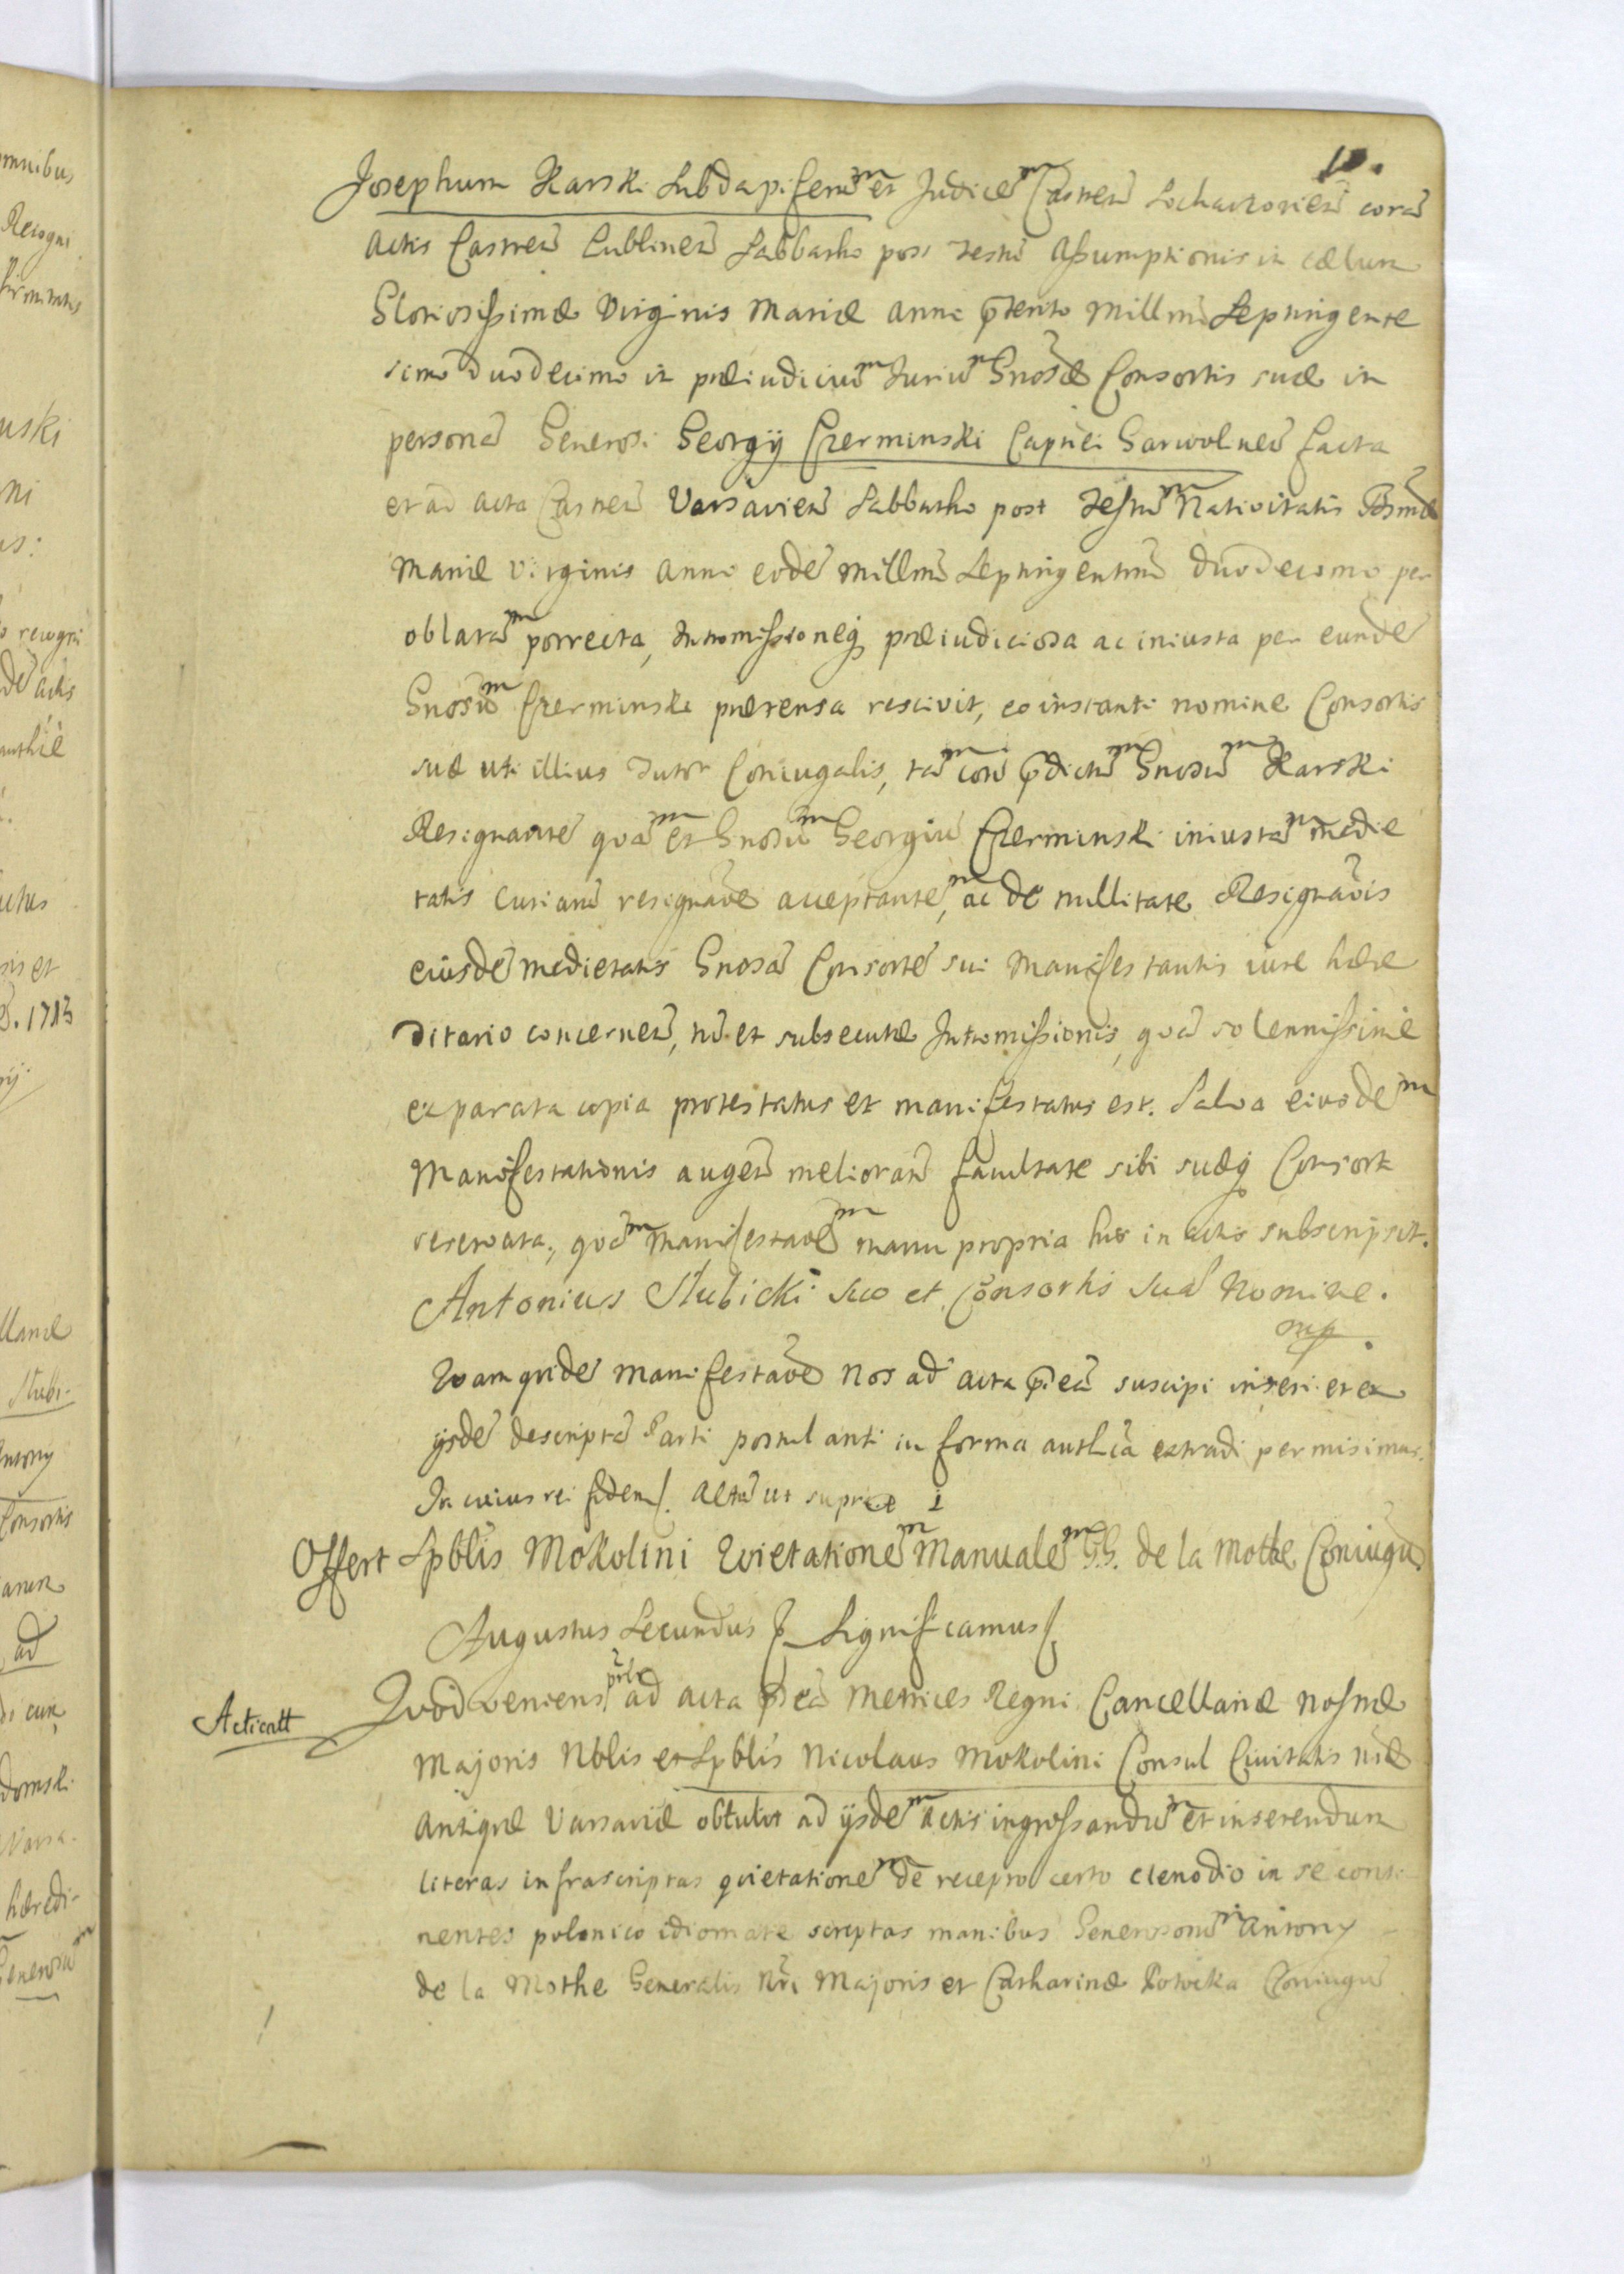 10.
Josephum Karski Subdapiferũm et Judicem Castreñ Sochaczovieñ corã
Actis Castreñ Lublineñ Sabbatho post Festũ Assumptionis in cælum
Gloriosissimæ Virginis Mariæ Anno p̃terito Millmo Septingente
simo duodecimo in præiudiciũm Juriũm Gnosæ Consortis suæ in
personã Generosi Georgij Czerminski Capnei Garwolneñ facta
et ad acta Castreñ Varsavieñ Sabbatho post Festũm Nativitatis Bsmæ
Mariæ Virginis Anno eodẽ Millmõ Septingentmõ duodecimo per
oblatãm porrecta, Intromissioneq̃ præiudiciosa ac iniusta per eundẽ
Gnosũm Czerminski prætensa rescivit, eo instanti nomine Consortis
suæ uti illius Tutor Coniugalis, tãm con̄ p̃dictũm Gnosũm Karski
Resignantẽ quãm et Gnosũm Georgiũ Czerminski iniustãm medie
tatis Curiarũ resignãoẽ acceptantẽm, ac de nullitate Resignãois
eiusdẽ medietatis Gnosã Consortẽ sui Manifestantis iure hære
ditario concerneñ, nẽ et subsecutæ Intromissionis, quã solennissimè
ex parata copia protestatus et manifestatus est. Salva eiusdẽm
Manifestationis augeñ meliorañ facultate sibi suæq̃ Consorti
reservata, quãm Manifestãoẽm manu propria his in actis subscripsit.
Antonius Słubicki Suo et Consortis Suæ Nomine.
mp
Quam quidẽ Manifestãoẽ Nos ad acta p̃ñteã suscipi inseri et ex
ijsdẽ descriptã Parti postulanti in forma authcã extradi permisimus.
In cuius rei fidem/. Actũ ut supra
Offert Spblis Mokolini Quietationẽm Manualẽm GG. de la Mothe Coniugũ
Augustus Secundus Significamus/.
Acticatt
Quod veniens pñlr ad acta p̃ñteã Metrices Regni Cancellariæ Nostræ
Majoris Nblis et Spblis Nicolaus Mokolini Consul Civitatis nræ
Antiquæ Varsaviæ obtulit ad ijsdẽm Actis ingrossandũm et inserendum
literas infrascriptas quietationẽm de recepto certo clenodio in se conti
nentes polonico idiomate scriptas manibus Generosorũm Antony
de la Mothe Generalis Nri Majoris et Catharinæ Coniugũ